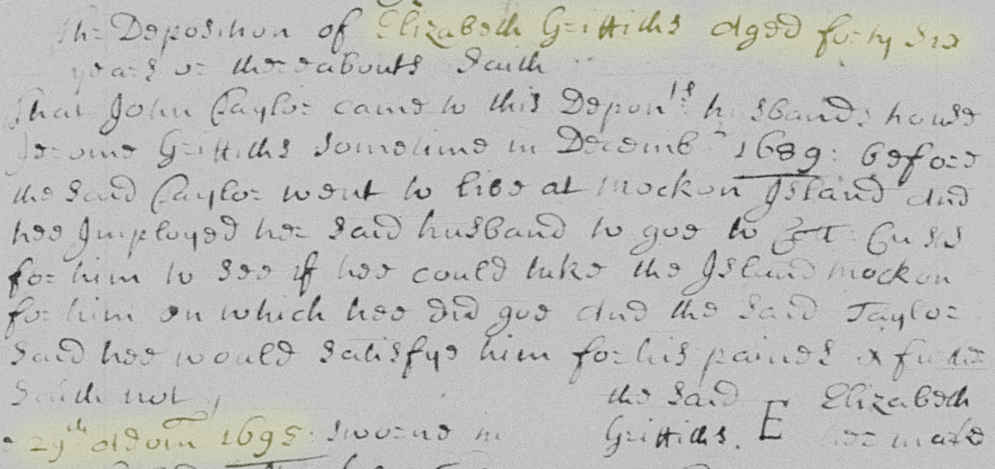 The Deposition of Elizabeth Griffiths aged forty six
years or thereabouts Saith
That John Taylor came to this Depon.ts husbands house
Jerome Griffiths sometime in Decemb.r 1689: before
the said Taylor went to live at Mockon Island and
hee Imployed her said husband to goe to
for him to see if hee could take the Island Mockon
for him on which hee did goe and the said Taylor
said hee would satisfye him for his paines & further
Saith not
the said E Elizabeth
29th 1695: sworne in Griffiths. her marke